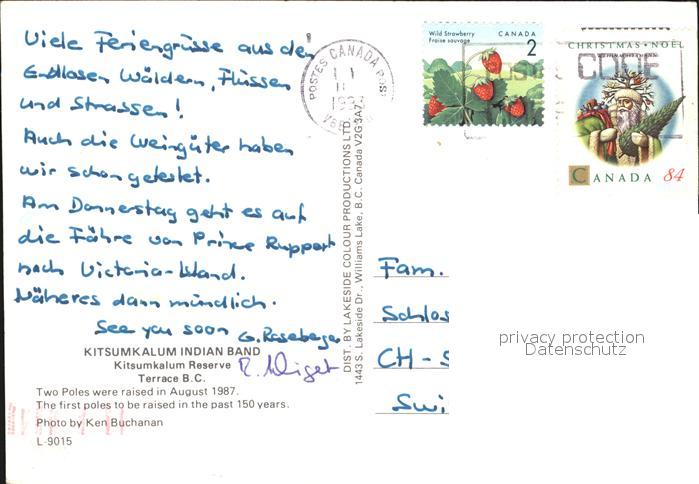 Viele Feriengrüsse aus den
Endlosen Wäldern, Flüssen
und Strassen!
Auch die Weingüter haben
wir schon getestet.
Am Donnerstag geht es auf
die Fähre von Prince Ruppert
nach Victoria-Island.
Näheres dann mündlich.
See you soon
KITSUMKALUM INDIAN BAND
Kitsumkalum Reserve
Terrace B.C.
Two Poles were raised in August 1987.
The first poles to be raised in the past 150 years.
Photo by Ken Buchanan
L-9015
DIST. BY LAKESIDE COLOUR PRODUCTIONS LTD.
1443 S. Lakeside Dr., Williams Lake, B.C. Canada V2G 3A7
POSTES CANADA POST
Wild Strawberry CANADA
Fraise sauvage 2
CHRISTMAS · NOËL
CODE
CANADA 84
Fam.
Schlos
CH - S
Swi
privacy protection
Datenschutz